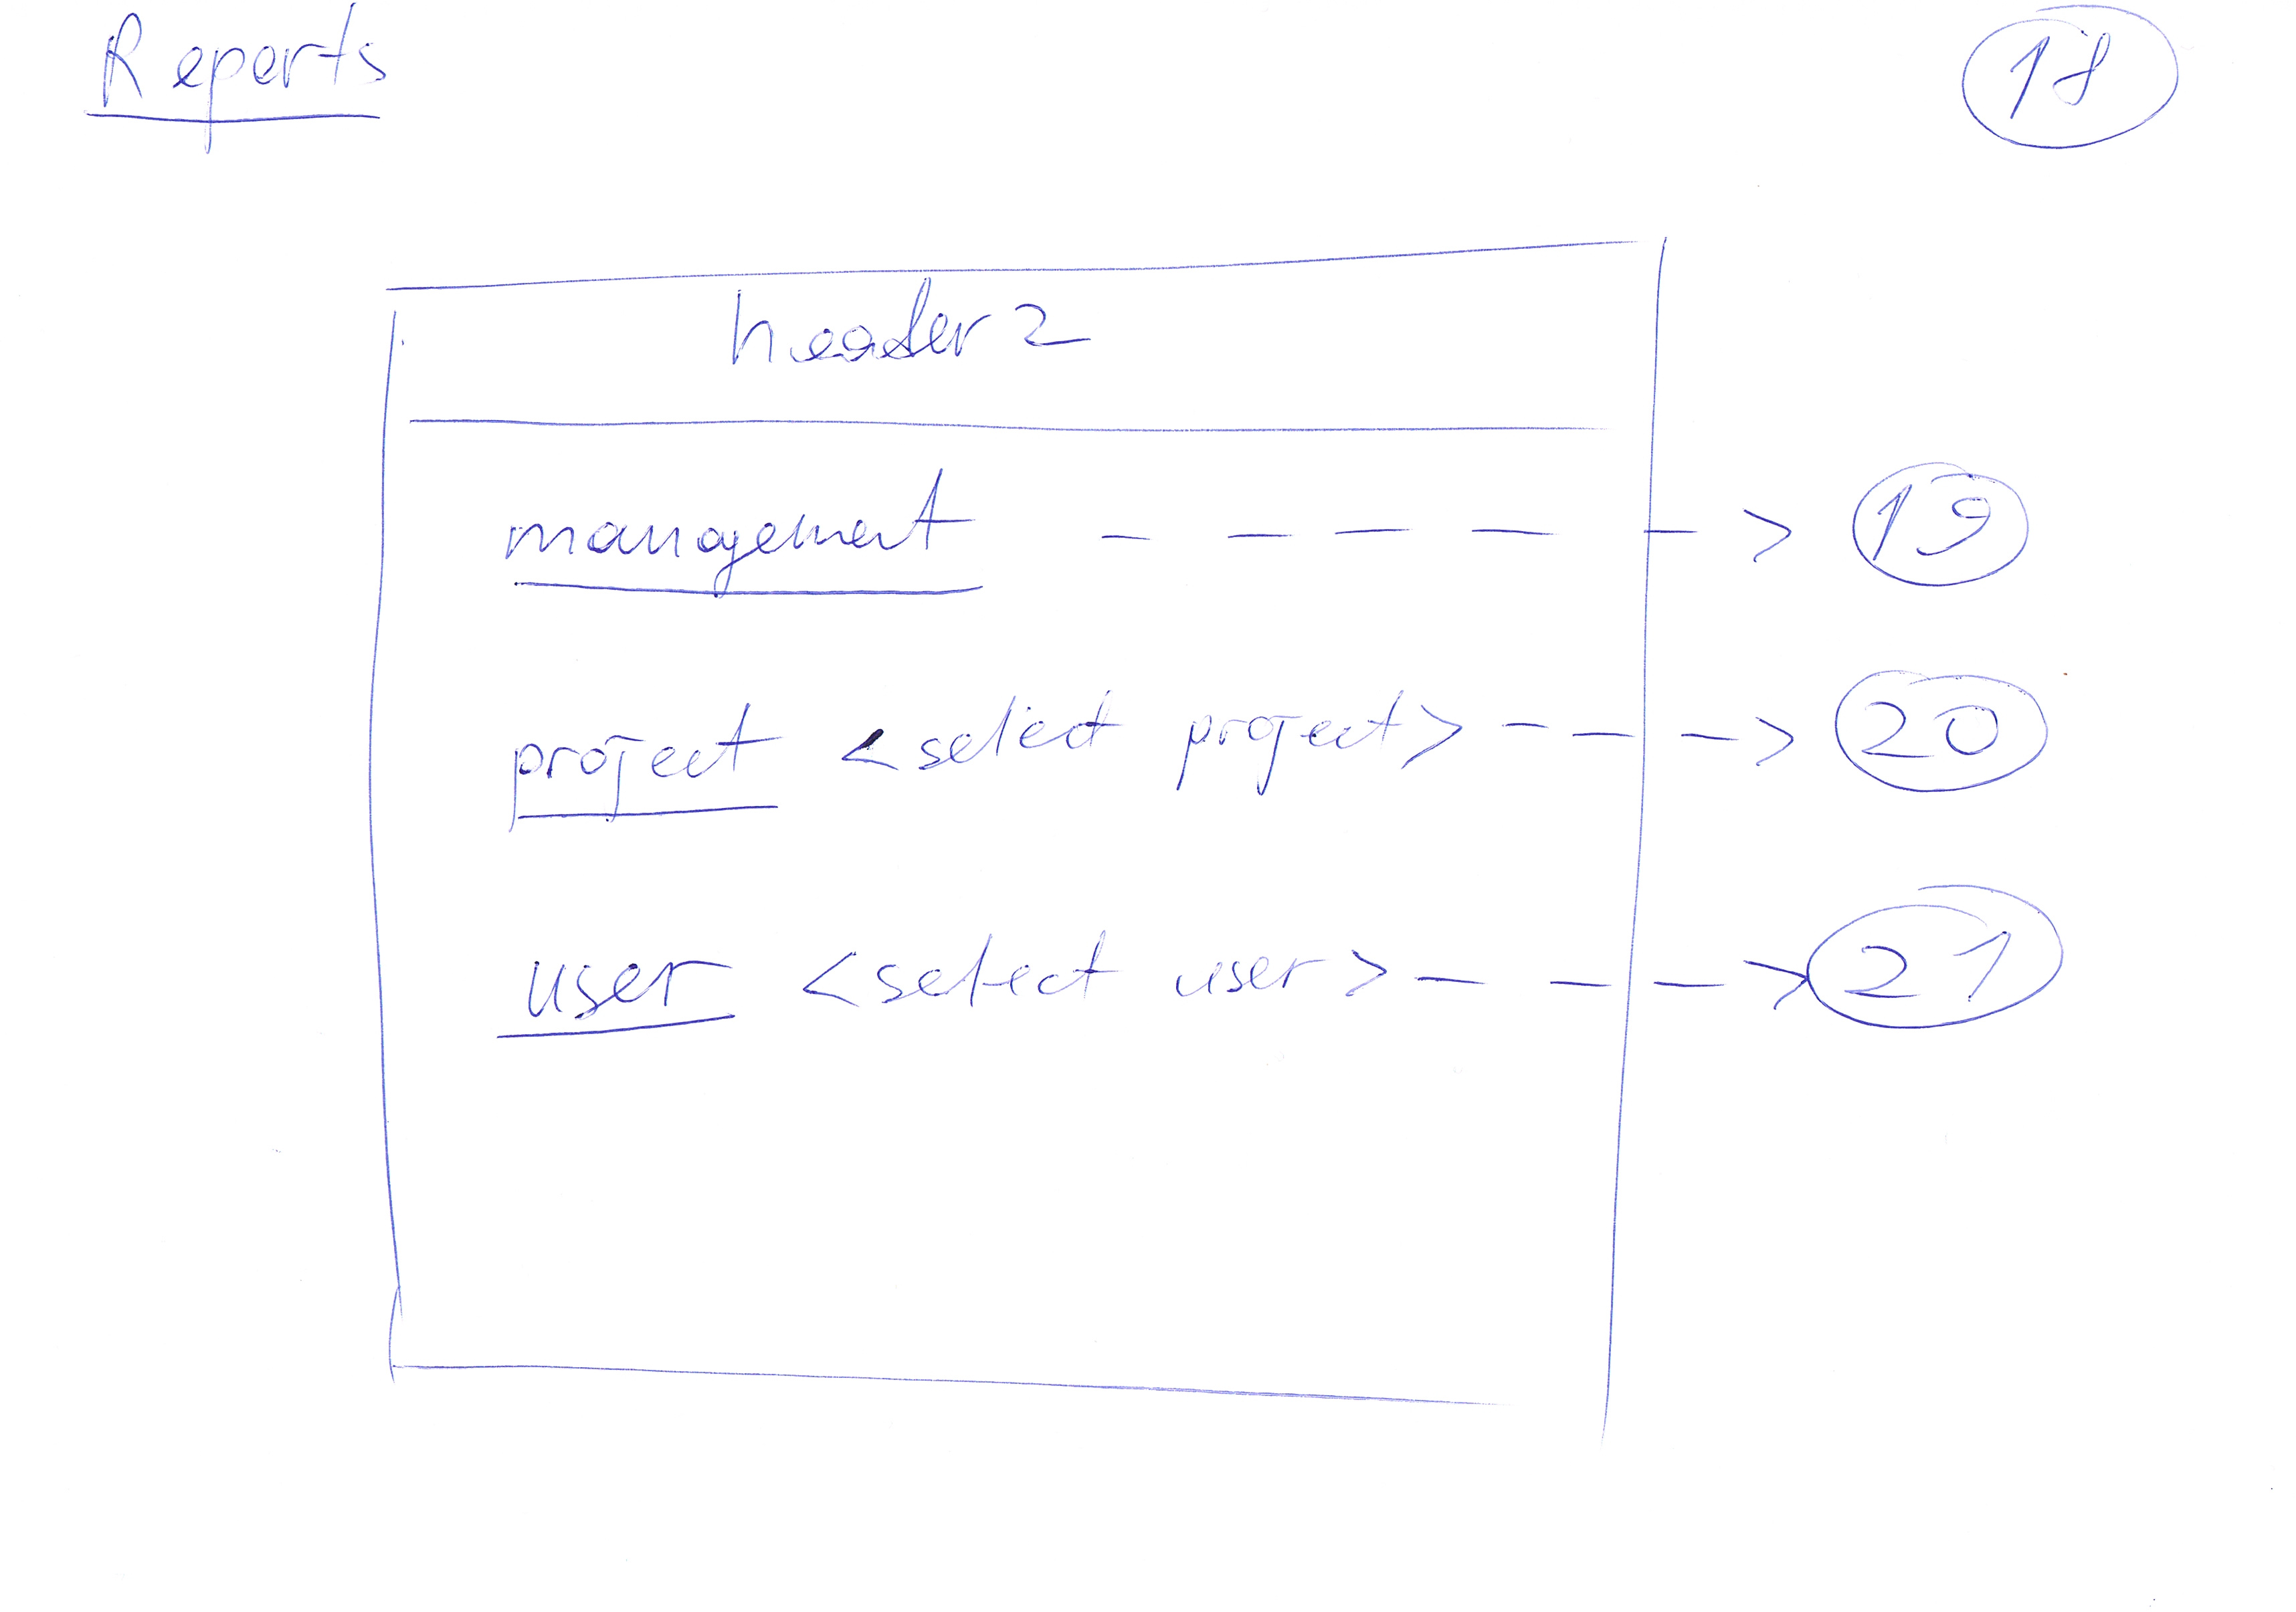 Reports 18
header 2
management - - - - - > 19
project <select project> - - - > 20
user <select user> - - - > 21